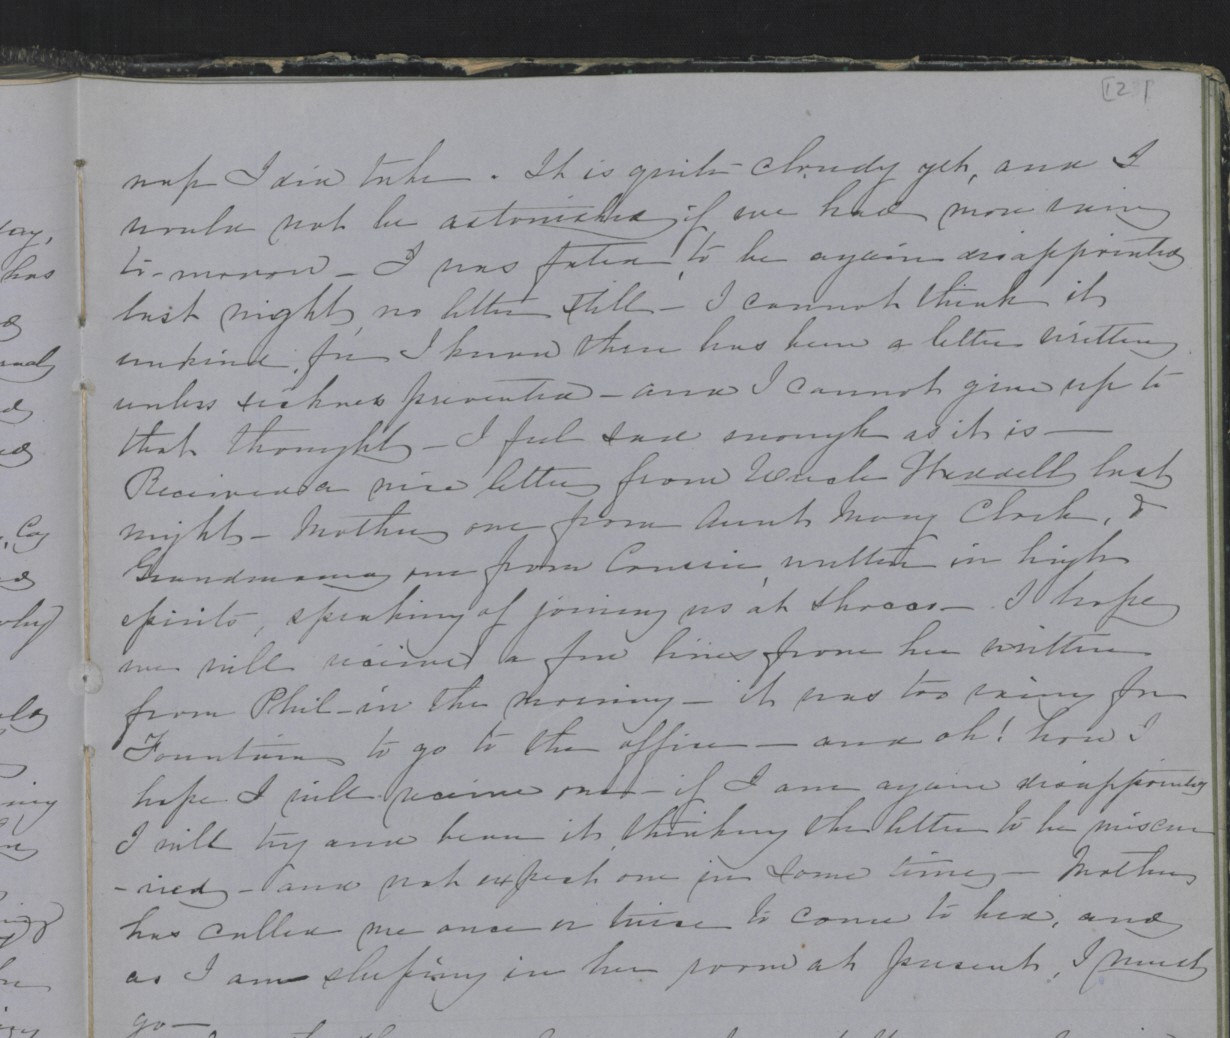 [12]
nap I did take. It is quite cloudy yet, and I
would not be astonished if we had more rain
to-morrow - I was fated to be again disappointed
last night, no letter still - I cannot think it
unkind, for I know there has been a letter written
unless sickness prevented - and I cannot give up to
that thought - I feel sad enough as it is -
Received a nice letter from Uncle Weddell last
night - Mother one from Aunt Mary Clark, &
Grandmama one from Cousin, written in high
spirits, speaking of joining us at Shocco - I hope
we will receive a few lines from her written
from Phil - in the morning - it was too rainy for
Fountain to go to the office - and oh! how I
hope I will receive one - if I am again disappointed
I will try and bear it, thinking the letter to be miscar
-ried - and not expect one for some time - Mother
has called me once or twice to come to bed, and
as I am sleeping in her room at present, I must
go -